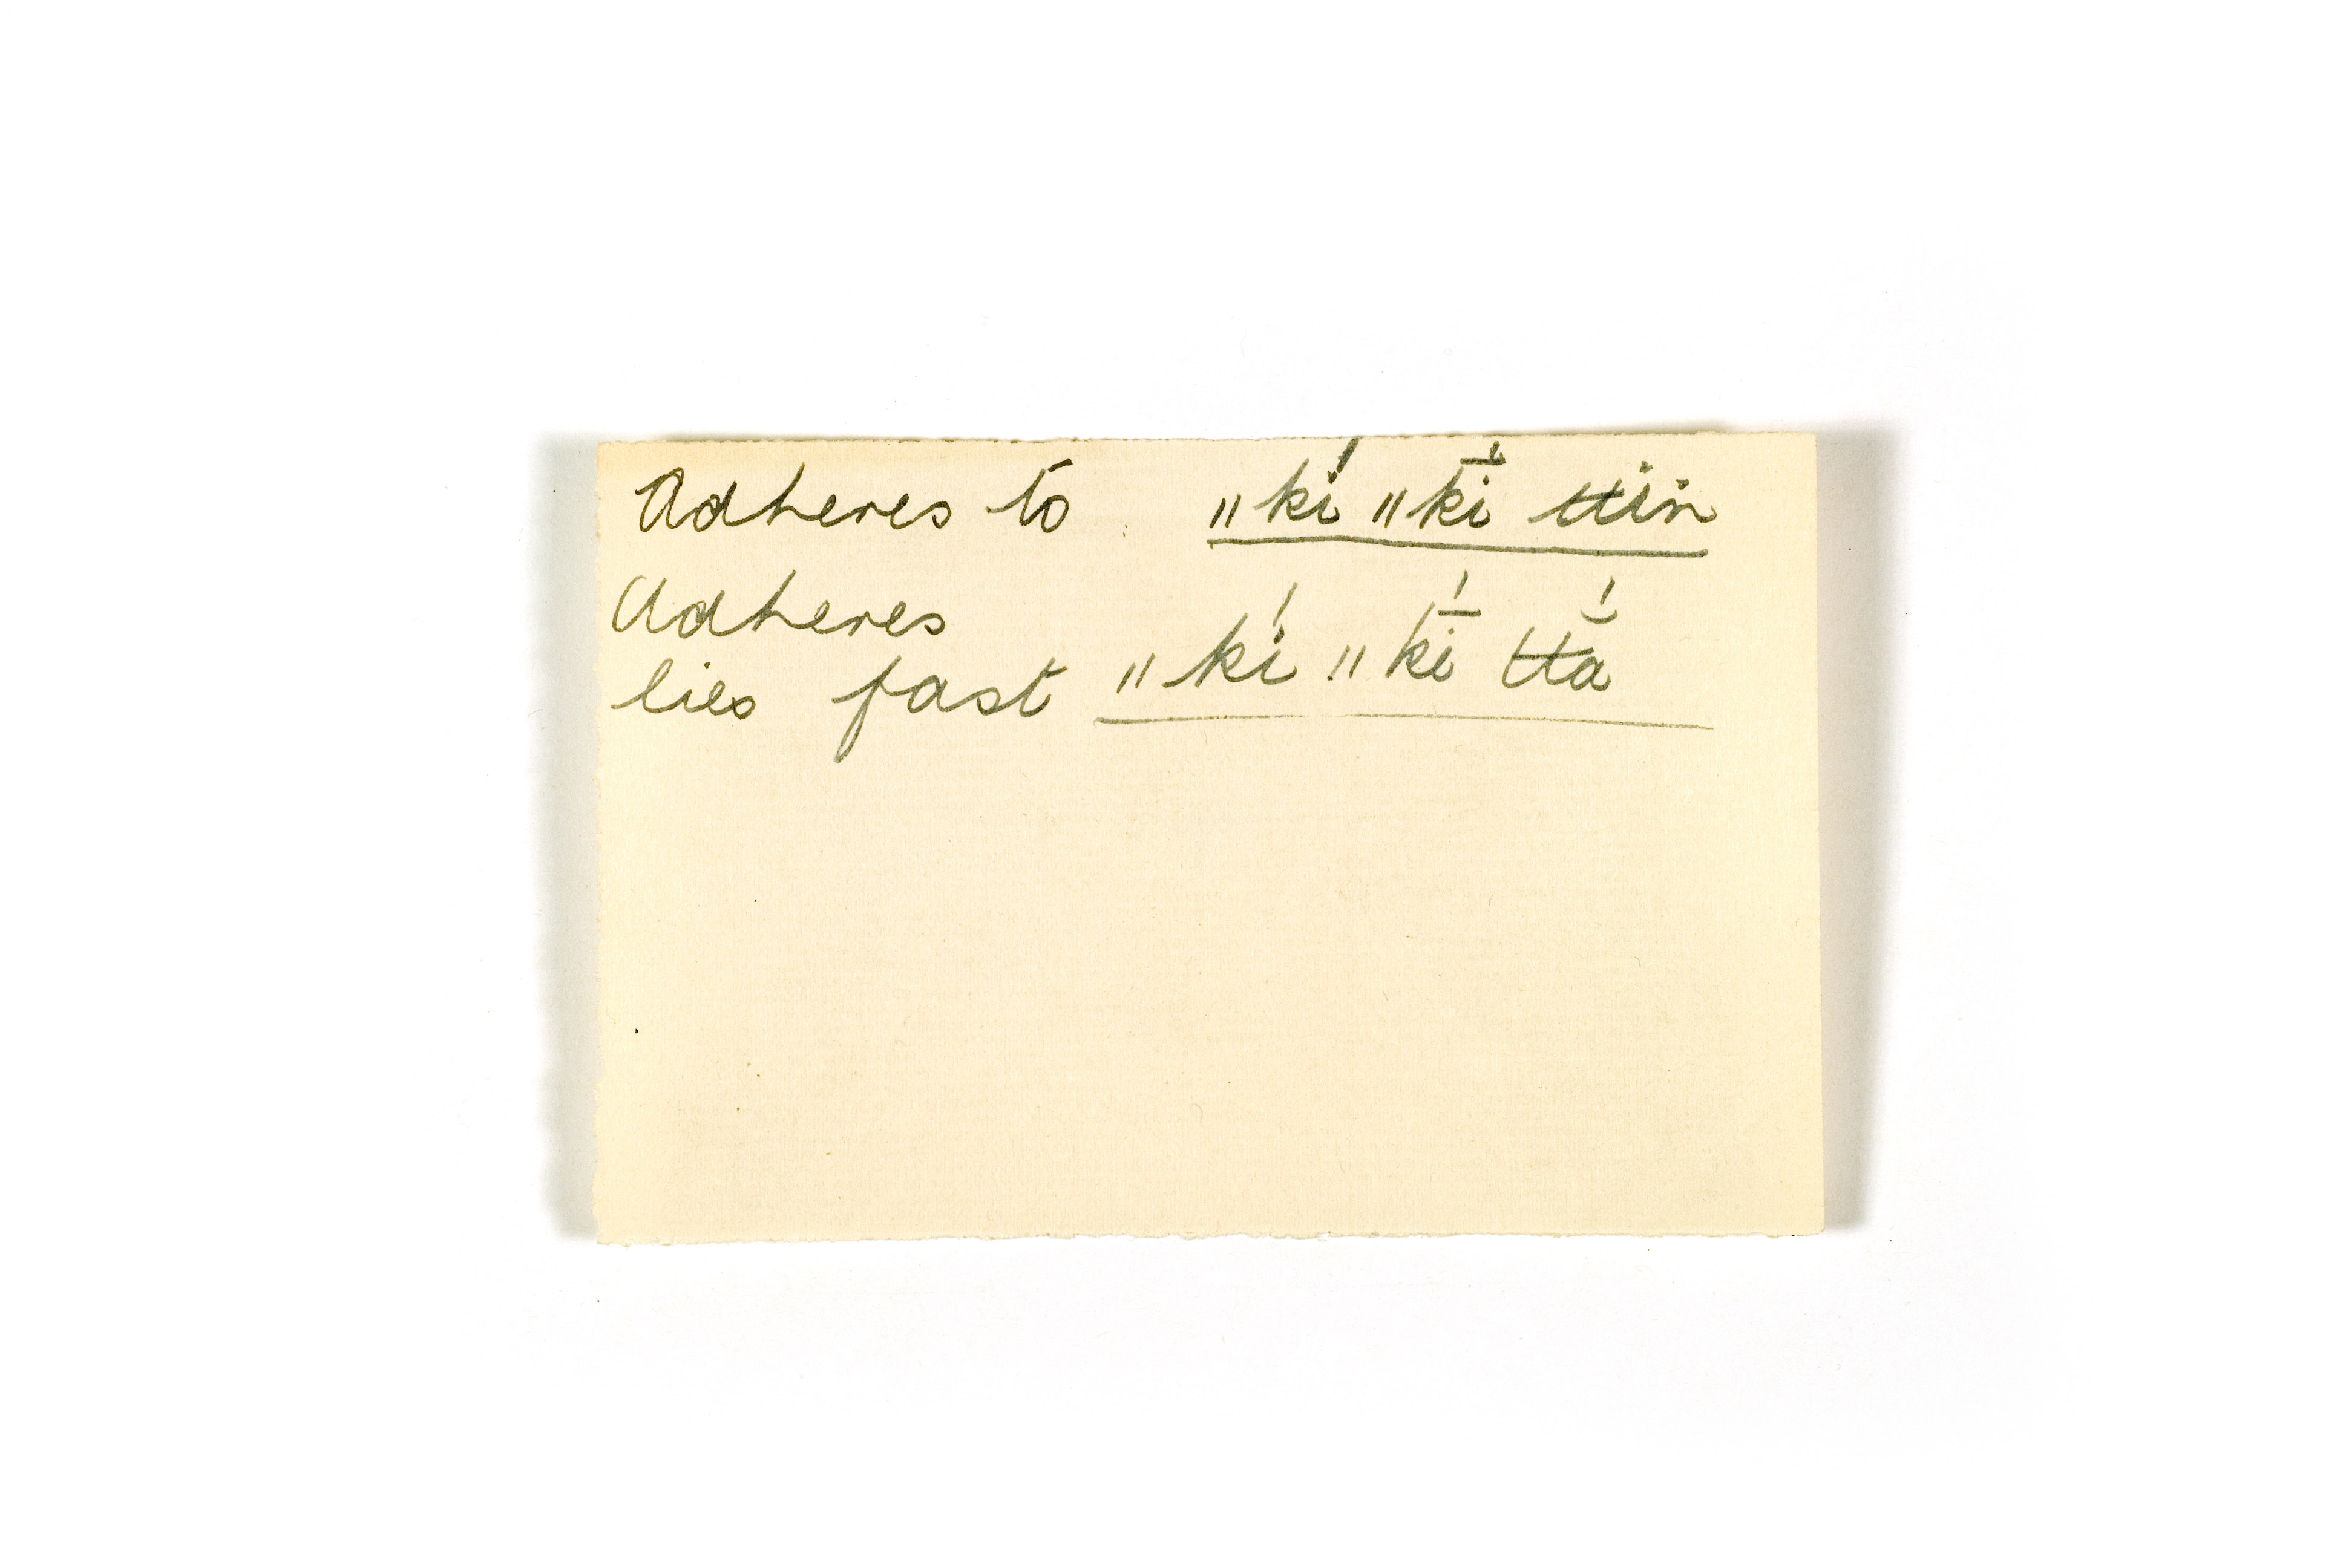 Adheres to „kí „kī́ ttin
Adheres
lies fast „kí „kī́ ttā́